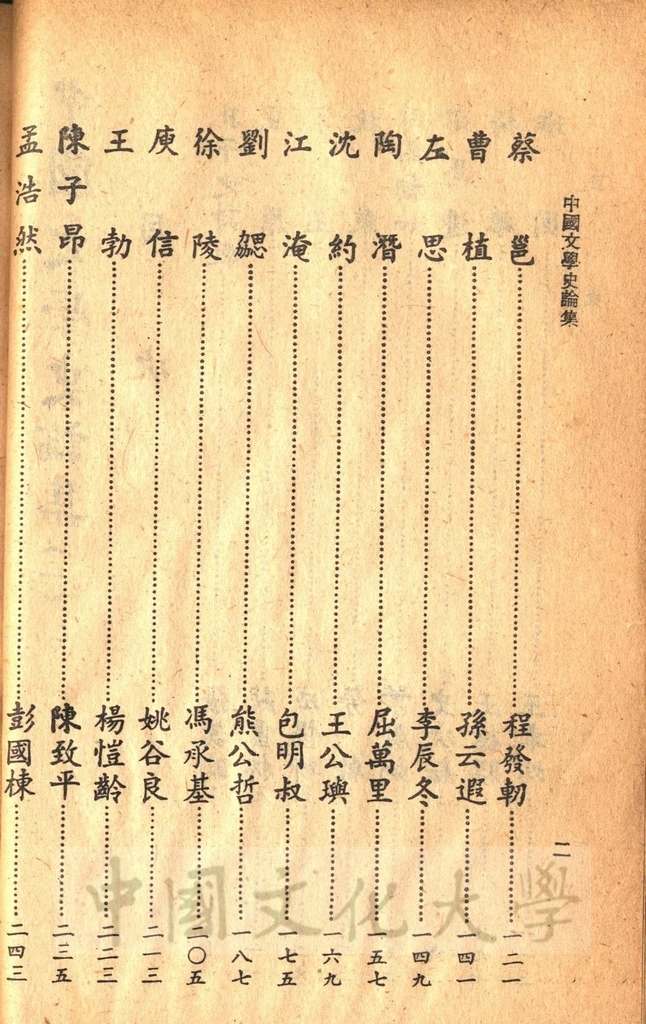 中國文學史論集
二
蔡邕……程發軔……一二一
曹植……孫云遐……一四一
左思……李辰冬……一四九
陶潛……屈萬里……一五七
沈約……王公璵……一六九
江淹……包明叔……一七五
劉勰……熊公哲……一八七
徐陵……馮承基……二〇五
庾信……姚谷良……二一三
王勃……楊愷齡……二二三
陳子昂……陳致平……二三五
孟浩然……彭國棟……二四三
中國文化大學